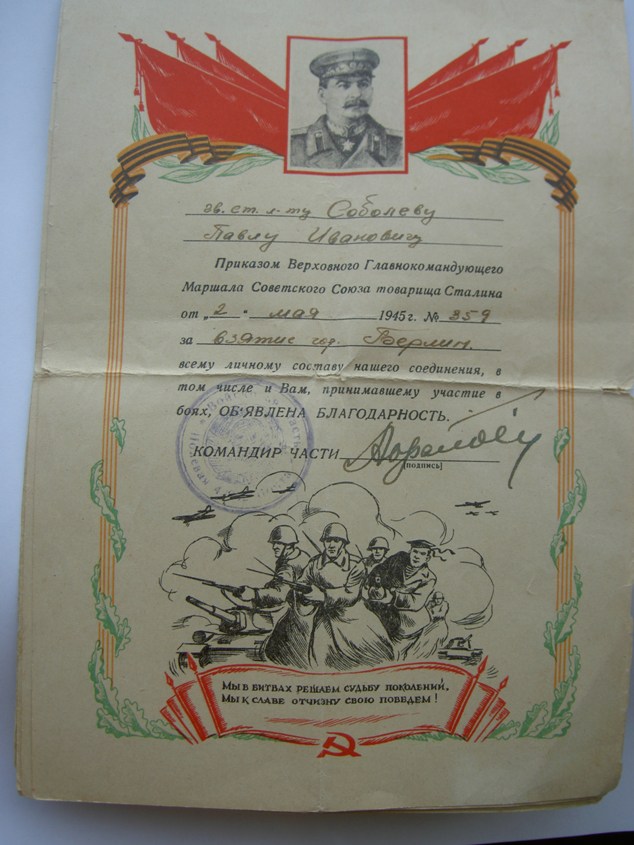 гв. ст. л-ту Соболеву
Павлу Ивановичу
Приказом Верховного Главнокомандующего
Маршала Советского Союза товарища Сталина
от „2 " мая 1945 г. № 359
за взятие гор. Берлин
всему личному составу нашего соединения, в
том числе и Вам, принимавшему участие в
боях, ОБ'ЯВЛЕНА БЛАГОДАРНОСТЬ.
КОМАНДИР ЧАСТИ
[подпись]
Мы в битвах решаем судьбу поколений,
Мы к славе отчизну свою поведем!